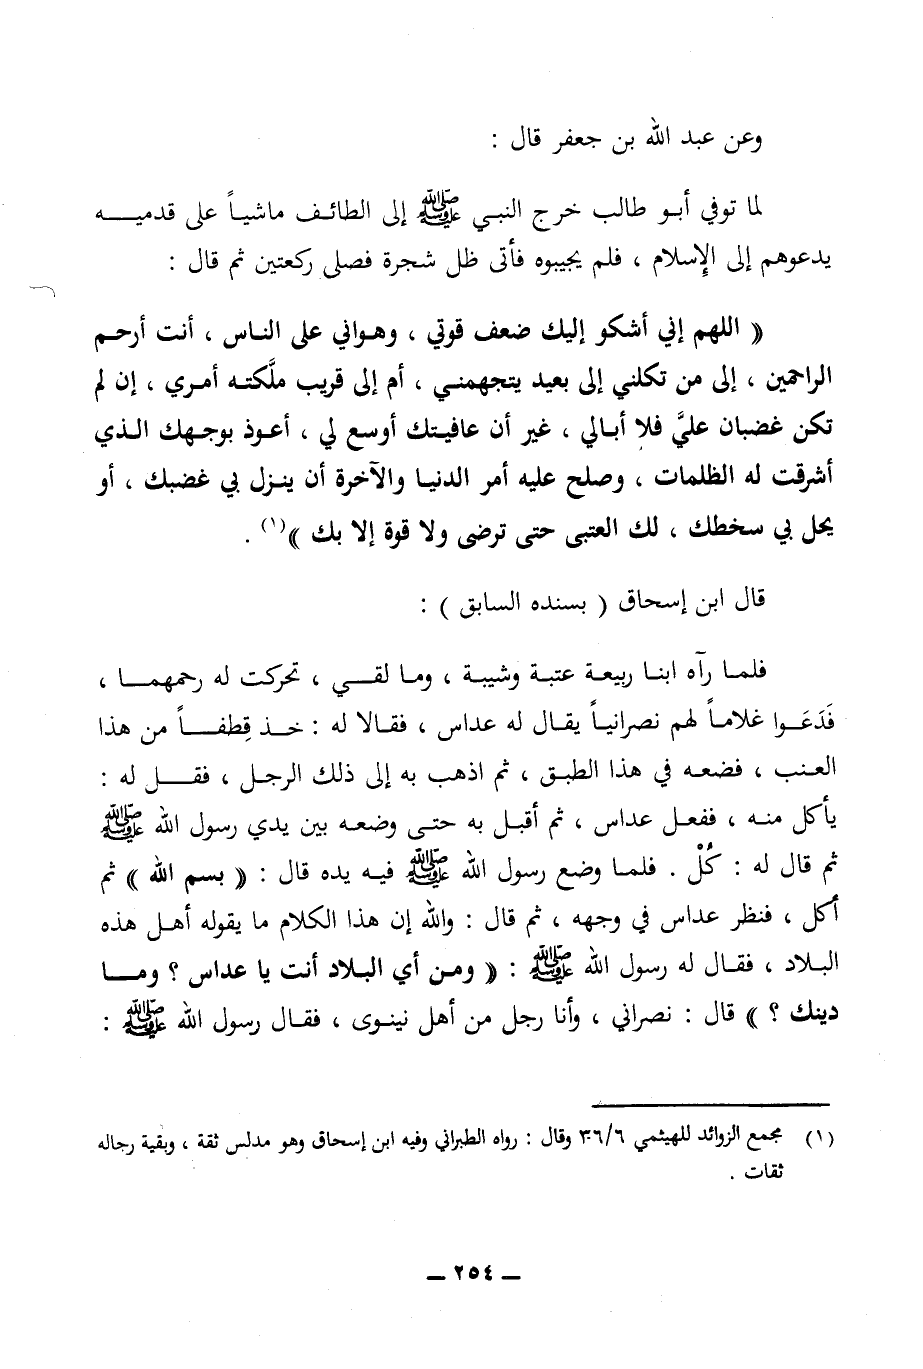 وعن عبد الله بن جعفر قال :
لما توفي أبـو طالب خرج النبـي ﷺ إلى الطائـف ماشيـاً على قدميـــه
يدعوهم إلى الإسلام ، فلم يجيبوه فأتى ظل شجرة فصلى ركعتين ثم قال :
« اللهم إني أشكو إليك ضعف قوتي ، وهـواني على النـاس ، أنت أرحـم
الراحمين ، إلى من تكلني إلى بعيد يتجهمنـي ، أم إلى قريب ملَّكتـه أمـري ، إن لم
تكن غضبان عليَّ فلا أبـالي ، غير أن عافيـتك أوسع لي ، أعـوذ بوجـهك الـذي
أشرقت له الظلمات ، وصلح عليه أمر الدنيـا والآخرة أن ينـزل بي غضبك ، أو
يحل بي سخطك ، لك العتبى حتى ترضى ولا قوة إلا بك »(١) .
قال ابن إسحاق ( بسنده السابق ) :
فلمـا رآه ابنـا ربيعـة عتبـة وشيبـة ، ومـا لقـــي ، تحركت له رحمهمــا ،
فَدَعَـوا غلامـاً لهم نصرانيـاً يقال له عداس ، فقـالا له : خــذ قِطفــاً من هذا
العـنب ، فضعـه في هذا الطبق ، ثم اذهب به إلى ذلك الرجـل ، فقـــل له :
يأكل منـه ، ففعـل عداس ، ثم أقبـل به حتـى وضعـه بين يدي رسول الله ﷺ
ثم قال له : كُلْ . فلمـا وضع رسول الله ﷺ فيـه يده قال : « بسم الله » ثم
أكل ، فنظر عداس في وجهه ، ثم قال : والله إن هذا الكلام ما يقوله أهـل هذه
البـلاد ، فقـال له رسول الله ﷺ : « ومـن أي البـلاد أنت يا عداس ؟ ومــا
دينك ؟ » قال : نصراني ، وأنا رجل من أهل نينـوى ، فقـال رسول الله ﷺ :
(١) مجمع الزوائد للهيثمي ٣٦/٦ وقال : رواه الطبراني وفيه ابن إسحاق وهو مدلس ثقة ، وبقية رجاله
ثقات .
ــ ٢٥٤ ــ